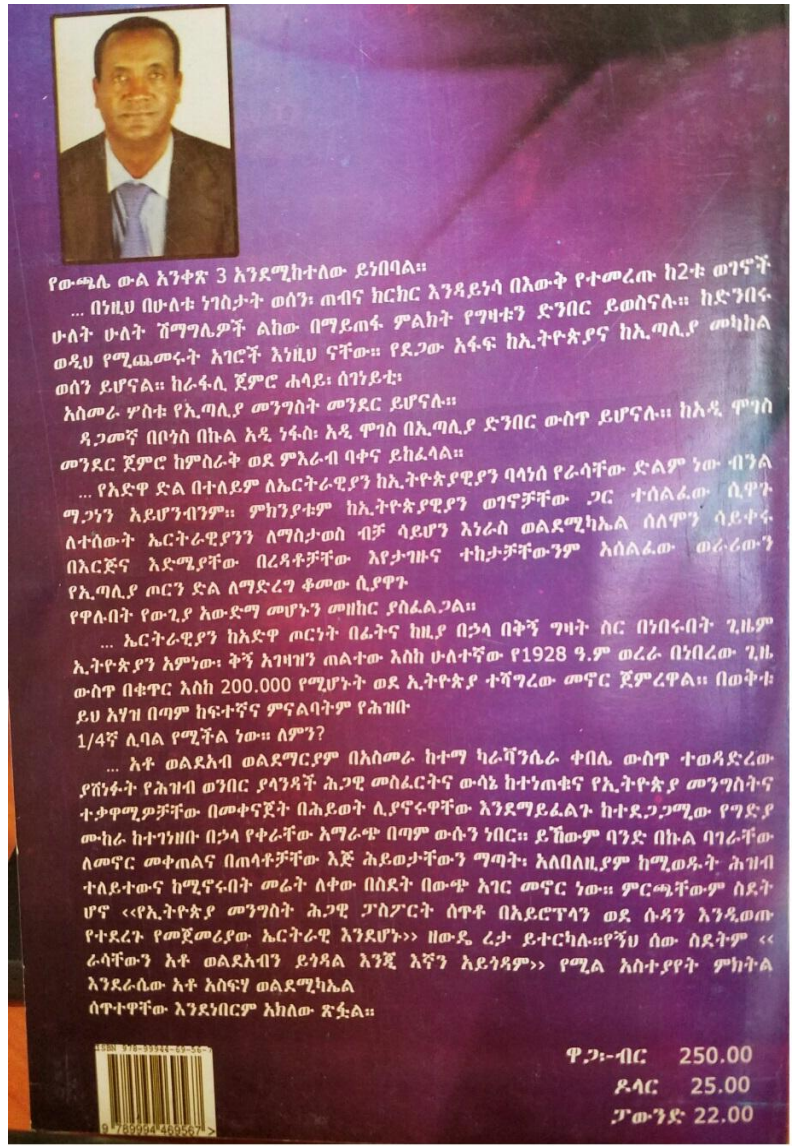 የውጫሌ ውል አንቀጽ 3 እንደሚከተለው ይነበባል።
... በነዚህ በሁለቱ ነገስታት ወሰን፡ ጠብና ክርክር እንዳይነሳ በእውቅ የተመረጡ ከ2ቱ ወገኖች
ሁለት ሁለት ሽማግሌዎች ልከው በማይጠፋ ምልክት የግዛቱን ድንበር ይወስናሉ። ከድንበሩ
ወዲህ የሚጨመሩት አገሮች እነዚህ ናቸው። የደጋው አፋፍ ከኢትዮጵያና ከኢጣሊያ መካከል
ወሰን ይሆናል። ከራፋሊ ጀምሮ ሐላይ፡ ሰገነይቲ፡
አስመራ ሦስቱ የኢጣሊያ መንግስት መንደር ይሆናሉ።
ዳጋመኛ በቦጎስ በኩል አዲ ነፋስ፡ አዲ ሞገስ በኢጣሊያ ድንበር ውስጥ ይሆናሉ። ከአዲ ሞገስ
መንደር ጀምሮ ከምስራቅ ወደ ምእራብ ባቀና ይከፈላል።
... የአድዋ ድል በተለይም ለኤርትራዊያን ከኢትዮጵያዊያን ባላነሰ የራሳቸው ድልም ነው ብንል
ማጋነን አይሆንብንም። ምክንያቱም ከኢትዮጵያዊያን ወገኖቻቸው ጋር ተሰልፈው ሲዋጉ
ለተሰውት ኤርትራዊያንን ለማስታወስ ብቻ ሳይሆን እነራስ ወልደሚካኤል ሰለሞን ሳይቀሩ
በእርጅና እድሜያቸው በረዳቶቻቸው እየታገዙና ተከታቻቸውንም አሰልፈው ወራሪውን
የኢጣሊያ ጦርን ድል ለማድረግ ቆመው ሲያዋጉ
የዋሉበት የውጊያ አውድማ መሆኑን መዘከር ያስፈልጋል።
... ኤርትራዊያን ከአድዋ ጦርነት በፊትና ከዚያ በኃላ በቅኝ ግዛት ስር በነበሩበት ጊዜም
ኢትዮጵያን አምነው፡ ቅኝ አገዛዝን ጠልተው እስከ ሁለተኛው የ1928 ዓ.ም ወረራ በነበረው ጊዜ
ውስጥ በቁጥር እስከ 200.000 የሚሆኑት ወደ ኢትዮጵያ ተሻግረው መኖር ጀምረዋል። በወቅቱ
ይህ አሃዝ በጣም ከፍተኛና ምናልባትም የሕዝቡ
1/4ኛ ሊባል የሚችል ነው። ለምን?
... አቶ ወልደአብ ወልደማርያም በአስመራ ከተማ ካራቫንሴራ ቀበሌ ውስጥ ተወዳድረው
ያሸነፉት የሕዝብ ወንበር ያላንዳች ሕጋዊ መስፈርትና ውሳኔ ከተነጠቁና የኢትዮጵያ መንግስትና
ተቃዋሚዎቻቸው በመቀናጀት በሕይወት ሊያኖሩዋቸው እንደማይፈልጉ ከተደጋጋሚው የግድያ
ሙከራ ከተገነዘቡ በኃላ የቀራቸው አማራጭ በጣም ውሱን ነበር። ይኸውም ባንድ በኩል ባገራቸው
ለመኖር መቀጠልና በጠላቶቻቸው እጅ ሕይወታቸውን ማጣት፡ አለበለዚያም ከሚወዱት ሕዝብ
ተለይተውና ከሚኖሩበት መሬት ለቀው በስደት በውጭ አገር መኖር ነው። ምርጫቸውም ስደት
ሆኖ ‹‹የኢትዮጵያ መንግስት ሕጋዊ ፓስፖርት ሰጥቶ በአይሮፕላን ወደ ሱዳን እንዲወጡ
የተደረጉ የመጀመሪያው ኤርትራዊ እንደሆኑ›› ዘውዴ ረታ ይተርካሉ።የኝህ ሰው ስደትም ‹‹
ራሳቸውን አቶ ወልደአብን ይጎዳል እንጂ እኛን አይጎዳም›› የሚል አስተያየት ምክትል
እንደራሴው አቶ አስፍሃ ወልደሚካኤል
ሰጥተዋቸው እንደነበርም አክለው ጽፏል።
ISBN 978-99944-69-56-7
9 789994 469567 >
ዋጋ፡-ብር 250.00
ዶላር 25.00
ፓውንድ 22.00